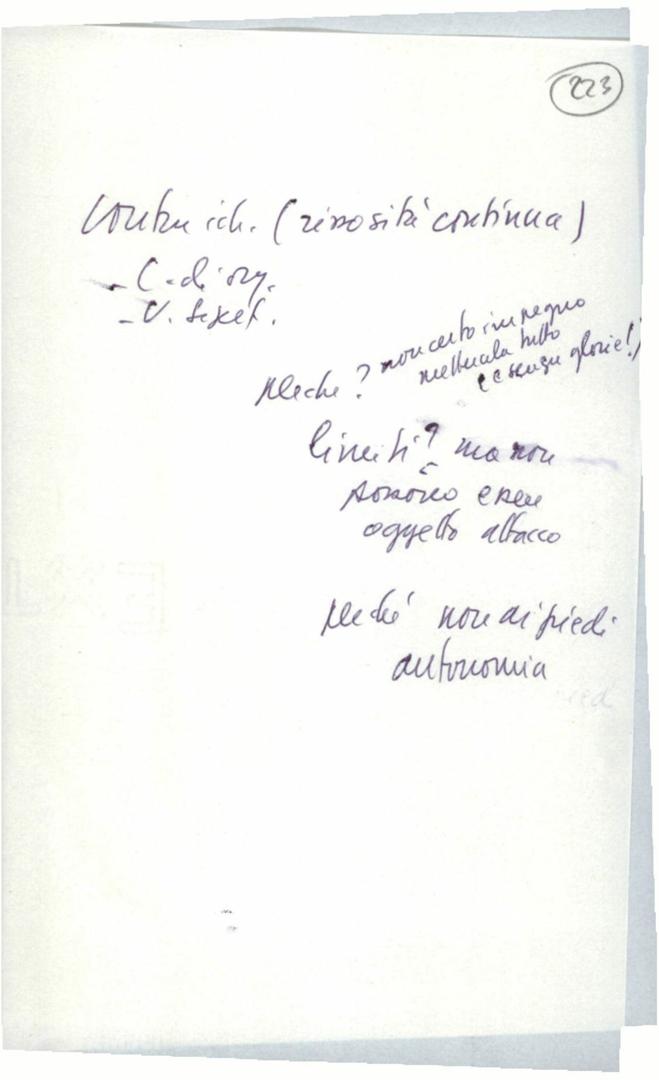 223
Contro ich. (rissosità continua)
- C. di org.
- V. segret.
perché? non certo impegno
tutto
(e senza glorie!)
limiti? ma non
possono essere
oggetto attacco
perché non di piedi
autonomia